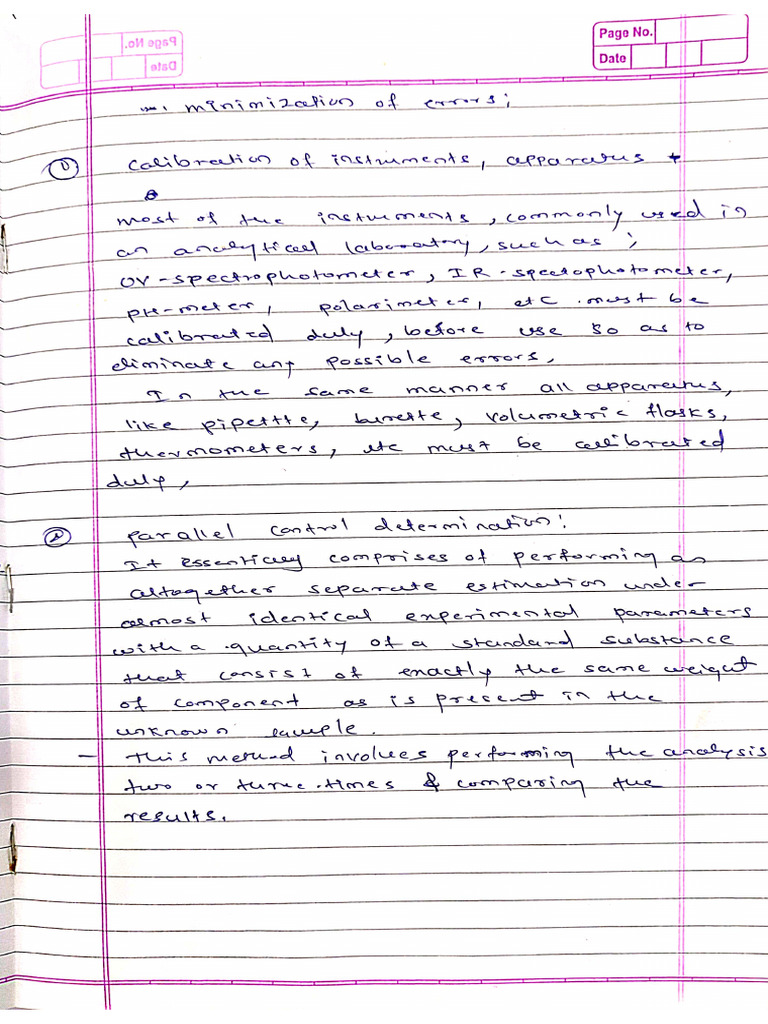 Page No.
Date
minimization of errors;
① calibration of instruments, apparatus +
most of the instruments, commonly used in
an analytical laboratory, such as ;
UV-spectrophotometer, IR-spectophotometer,
PH-meter, polarimeter, etc. must be
calibrated duly, before use so as to
eliminate any possible errors,
In the same manner all apparatus,
like pipette, burette, volumetric flasks,
thermometers, etc must be calibrated
duly,
② parallel control determination:
It essentially comprises of performing an
altogether separate estimation under
almost identical experimental parameters
with a quantity of a standard substance
that consist of exactly the same weight
of component as is present in the
unknown sample.
- This method involves performing the analysis
two or three times & comparing the
results.